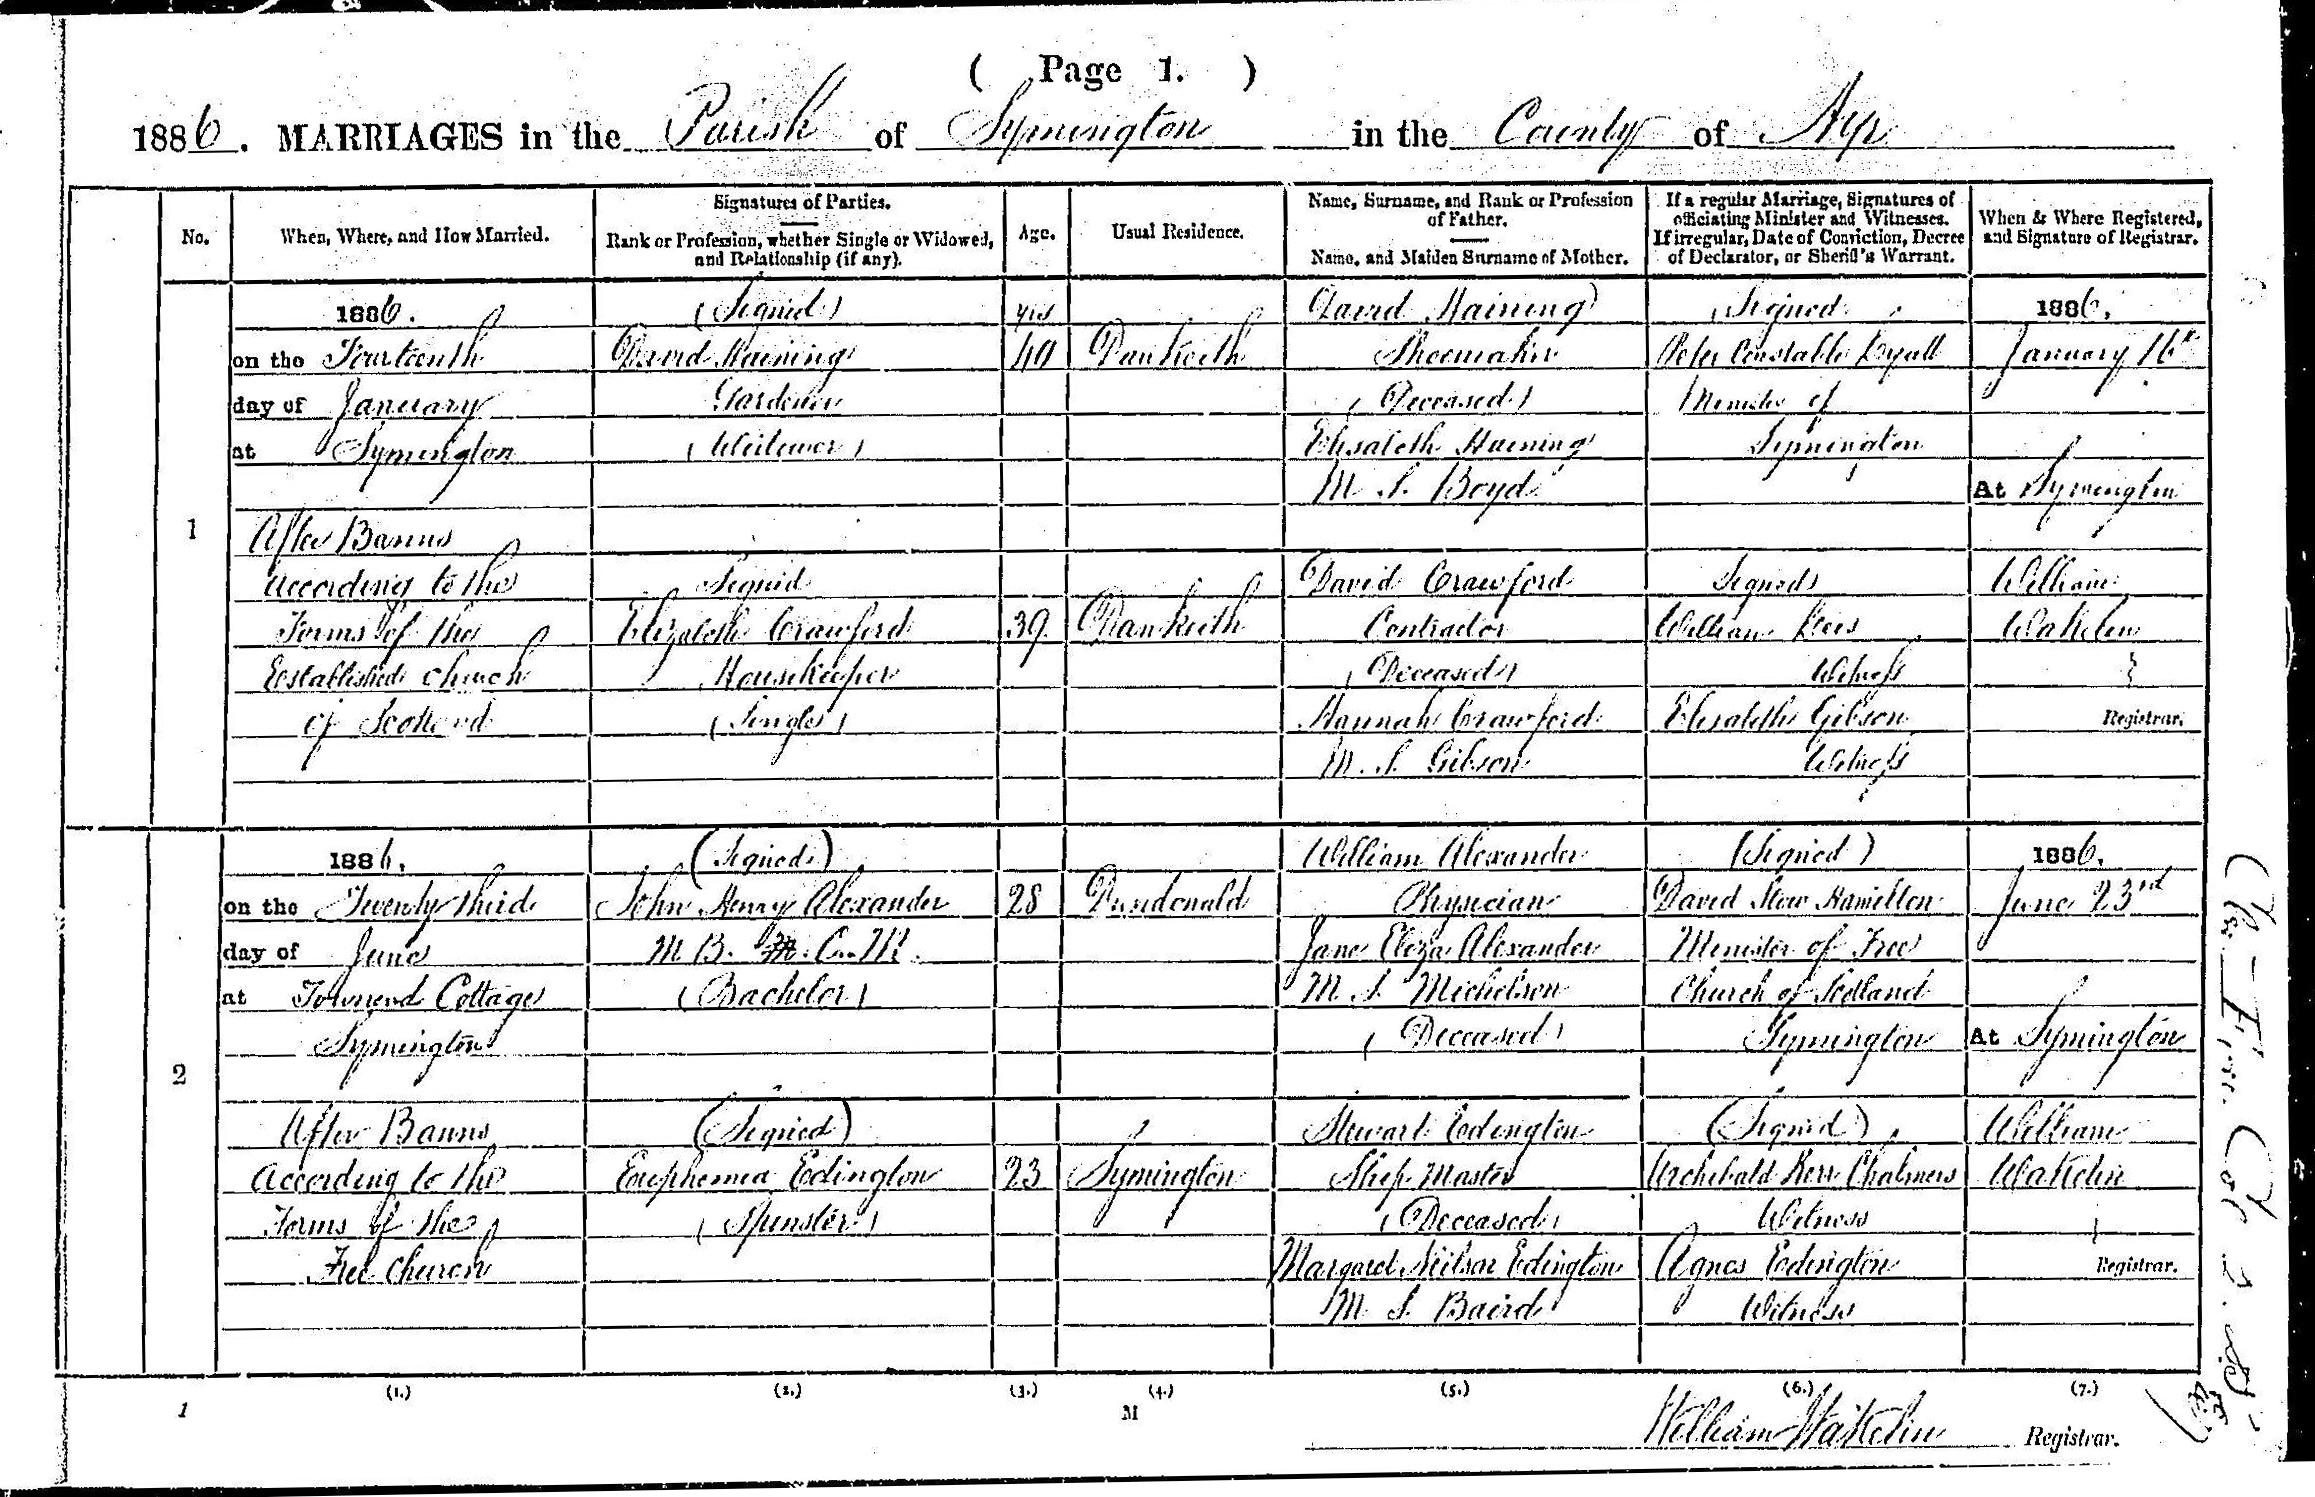 ( Page 1. )
1886. MARRIAGES in the Parish of Symington in the County of Ayr
No.
When, Where, and How Married.
Signatures of Parties.
Rank or Profession, whether Single or Widowed,
and Relationship (if any).
Age.
Usual Residence.
Name, Surname, and Rank or Profession
of Father.
Name, and Maiden Surname of Mother.
If a regular Marriage, Signatures of
officiating Minister and Witnesses.
If irregular, Date of Conviction, Decree
of Declarator, or Sheriff's Warrant.
When & Where Registered,
and Signature of Registrar.
1
1886.
on the Fourteenth
day of January
at Symington
After Banns
According to the
Forms of the
Established Church
of Scotland
(Signed)
David Haining
Gardener
(Widower)
Signed
Elizabeth Crawford
Housekeeper
(Single)
yrs
40
39
Dankeith
Dankeith
David Haining
Shoemaker
(Deceased)
Elisabeth Haining
M. S. Boyd
David Crawford
Contractor
(Deceased)
Hannah Crawford
M. S. Gibson
(Signed
Peter Constable Lyall
Minister of
Symington
Signed
William
Witness
Elisabeth Gibson
Witness
1886.
January 16th
At Symington
William
Wakelin
Registrar.
2
1886.
on the Twenty third
day of June
at Townend Cottage
Symington
After Banns
According to the
Forms of the
Free Church
(Signed)
John Henry Alexander
M B. C. M.
(Bachelor)
(Signed)
Euphemia Edington
(Spinster)
28
23
Dundonald
Symington
William Alexander
Physician
Jane Eliza Alexander
M. S. Michelson
(Deceased)
Stewart Edington
Ship Master
(Deceased)
Margaret Neilson Edington
M. S. Baird
(Signed)
David Stow Hamilton
Minister of Free
Church of Scotland
Symington
(Signed)
Archibald Kerr Chalmers
Witness
Agnes Edington
Witness
1886.
June 23rd
At Symington
William
Wakelin
Registrar.
(1.) (2.) (3.) (4.) (5.) (6.) (7.)
1
M
William Wakelin Registrar.